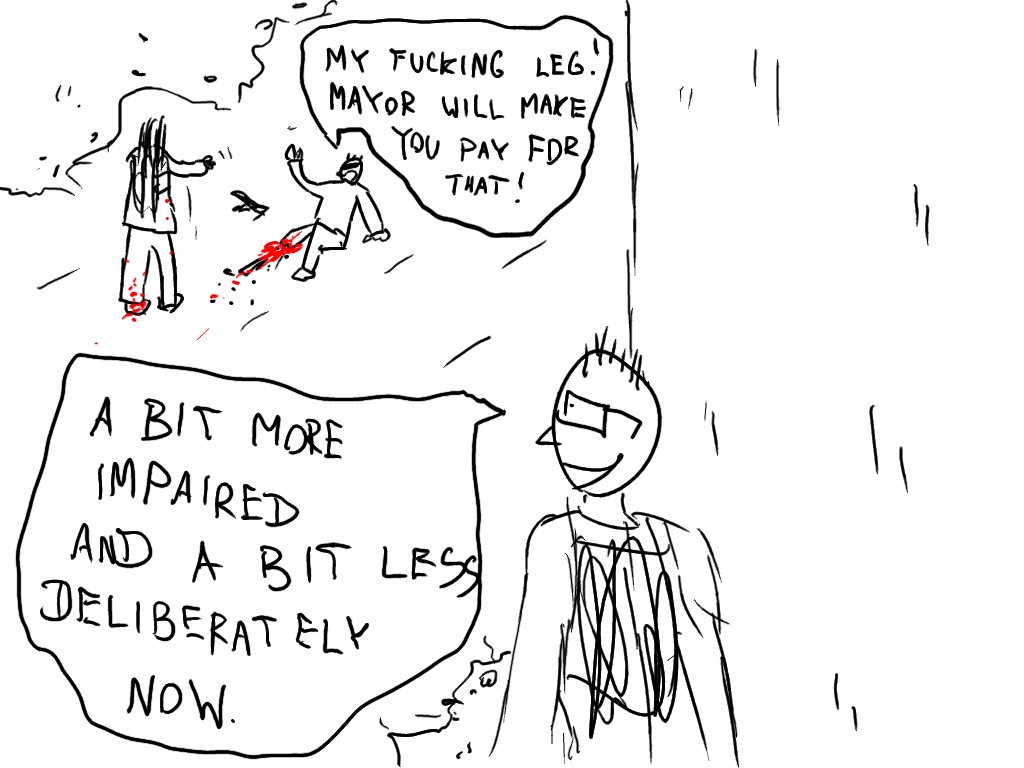 MY FUCKING LEG!
MAYOR WILL MAKE
YOU PAY FOR
THAT!
A BIT MORE
IMPAIRED
AND A BIT LESS
DELIBERATELY
NOW.